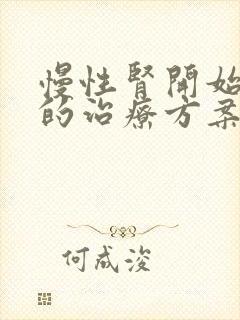 慢性腎開始
的治療方案
何成浚